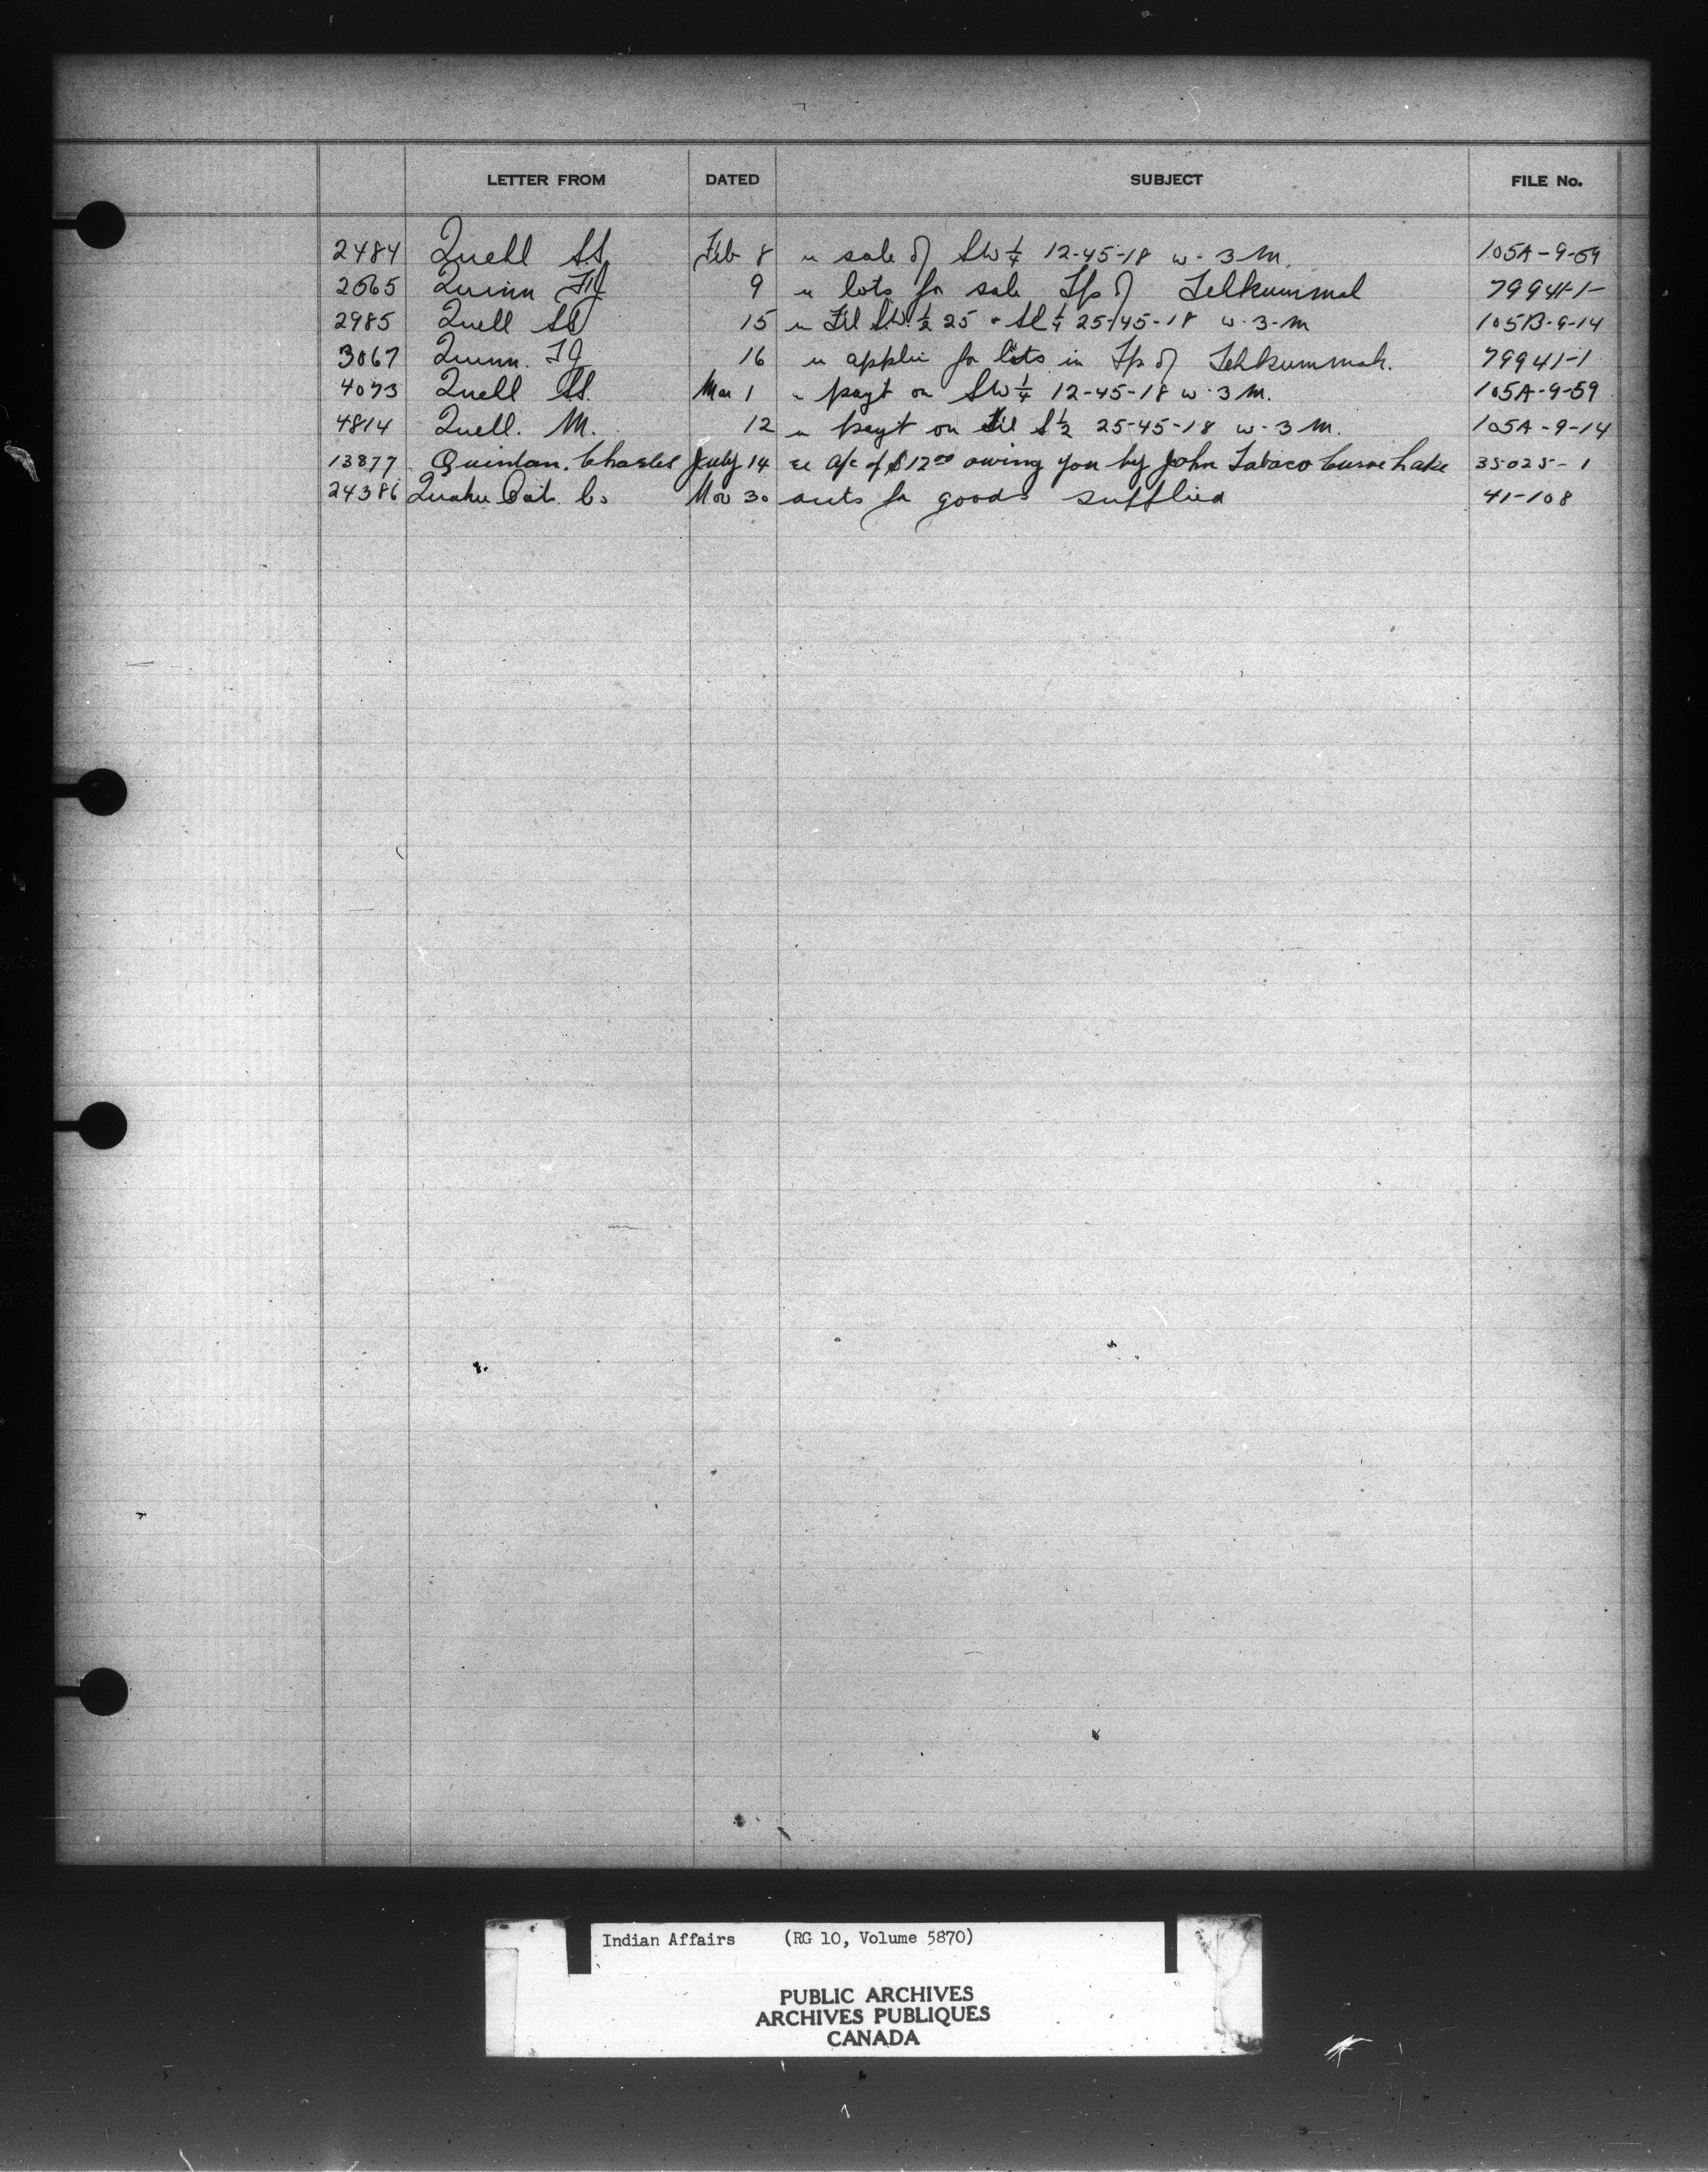 LETTER FROM DATED SUBJECT FILE No.
2484 Quell SS. Feb 8 re sale of SW ¼ 12-45-18 w. 3 M. 105A-9-59
2565 Quinn 9 re lots for sale Tp of Tehkummah 79941-1-
2985 Quell SS 15 re SW ½ 25 25-45-18 w. 3-M 105B-9-14
3067 Quinn. TJ 16 re applic for lots in Tp of Tehkummah. 79941-1
4073 Quell SS. Mar 1 re payt on SW ¼ 12-45-18 w. 3 M. 105A-9-59
4814 Quell. M. 12 re payt on S ½ 25-45-18 w. 3 M. 105A-9-14
13877 Quinlan. Charles July 14 re a/c of $12.00 owing you by John Tabaco Curve Lake 35025-1
24386 Quaker Oats Co Nov 30 accts for goods supplied 41-108
Indian Affairs (RG 10, Volume 5870)
PUBLIC ARCHIVES
ARCHIVES PUBLIQUES
CANADA